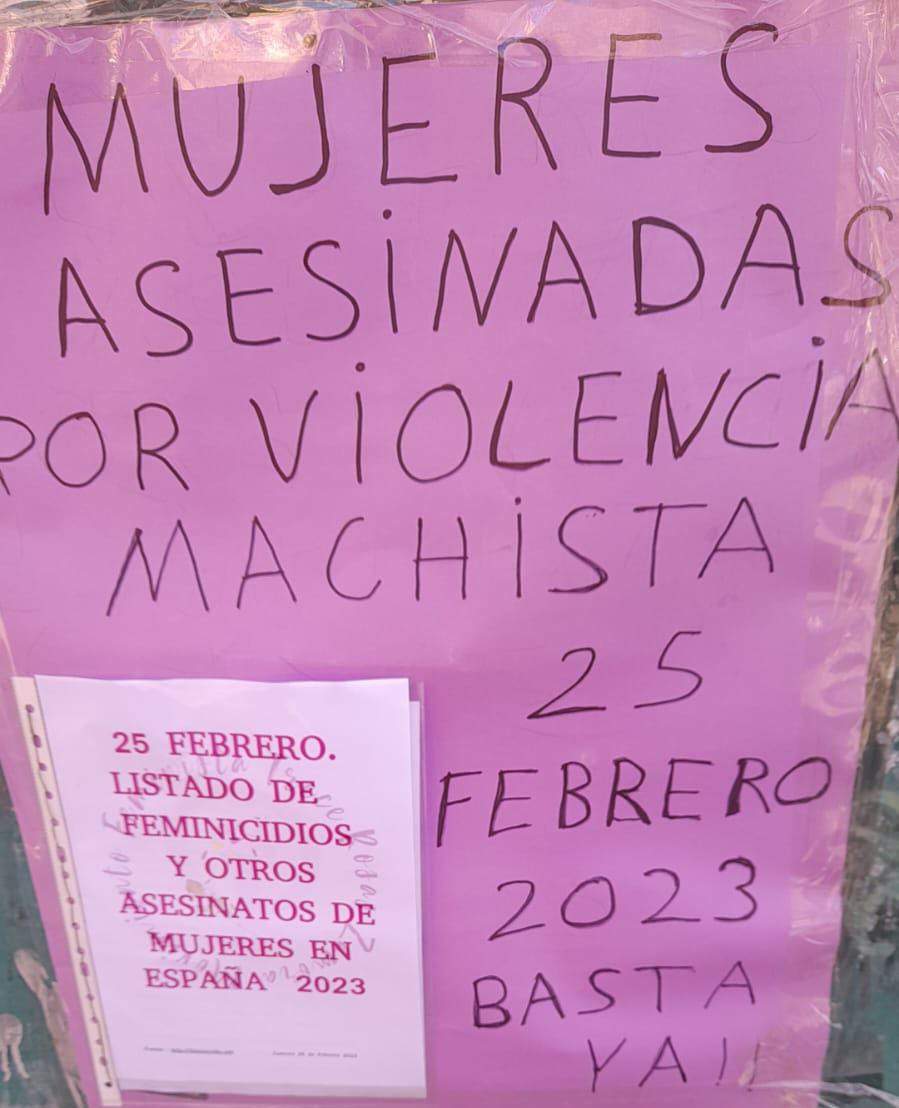 MUJERES
ASESINADAS
POR VIOLENCIA
MACHISTA
25
FEBRERO
2023
BASTA
YA!!
25 FEBRERO.
LISTADO DE
FEMINICIDIOS
Y OTROS
ASESINATOS DE
MUJERES EN
ESPAÑA 2023